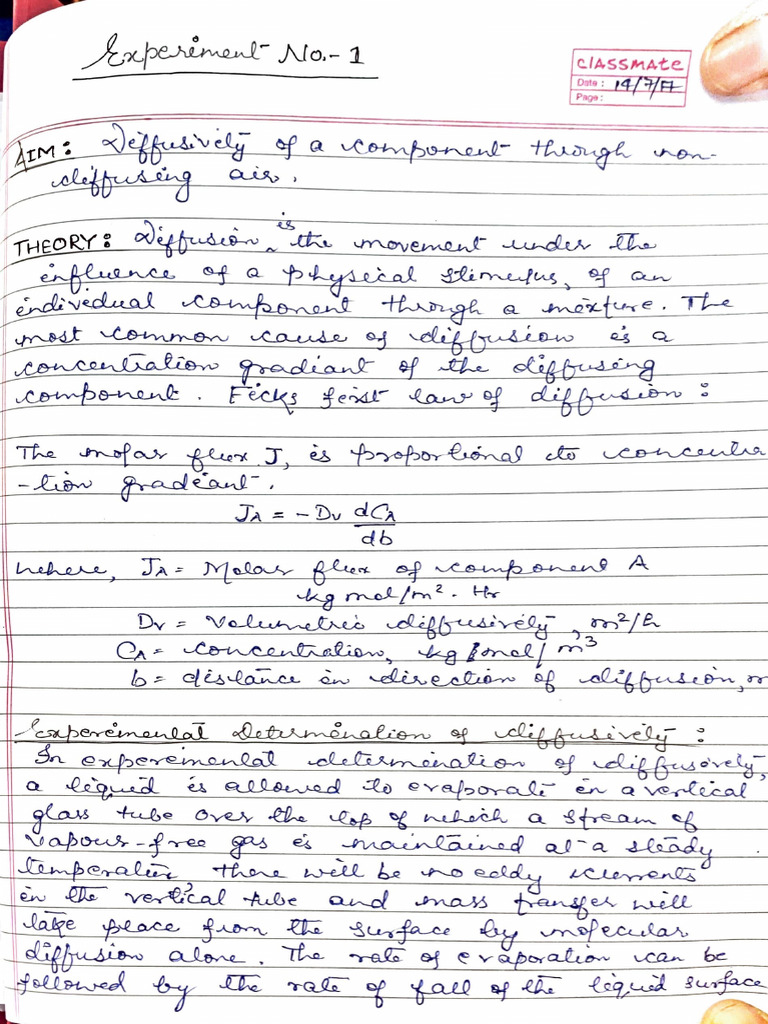 Experiment No.- 1
CLASSMATE
Date : 14/7/17
Page :
AIM: Diffusively of a component through non-
diffusing air.
THEORY: Diffusion is the movement under the
influence of a physical stimulus, of an
individual component through a mixture. The
most common cause of diffusion is a
concentration gradiant of the diffusing
component. Ficks first law of diffusion :
The molar flux J, is proportional to concentra
-tion gradiant.
JA = -Dv dCA
db
where, JA = Molar flux of component A
kg mol/m². Hr
Dv = Volumetric diffusively, m²/h
CA = concentration, kg mol/m³
b = distance in direction of diffusion, m
Experimental Determination of diffusively :
In experimental determination of diffusively,
a liquid is allowed to evaporate in a vertical
glass tube over the top of which a stream of
vapour-free gas is maintained at a steady
temperature there will be no eddy currents
in the vertical tube and mass transfer will
take place from the surface by molecular
diffusion alone. The rate of evaporation can be
followed by the rate of fall of the liquid surface